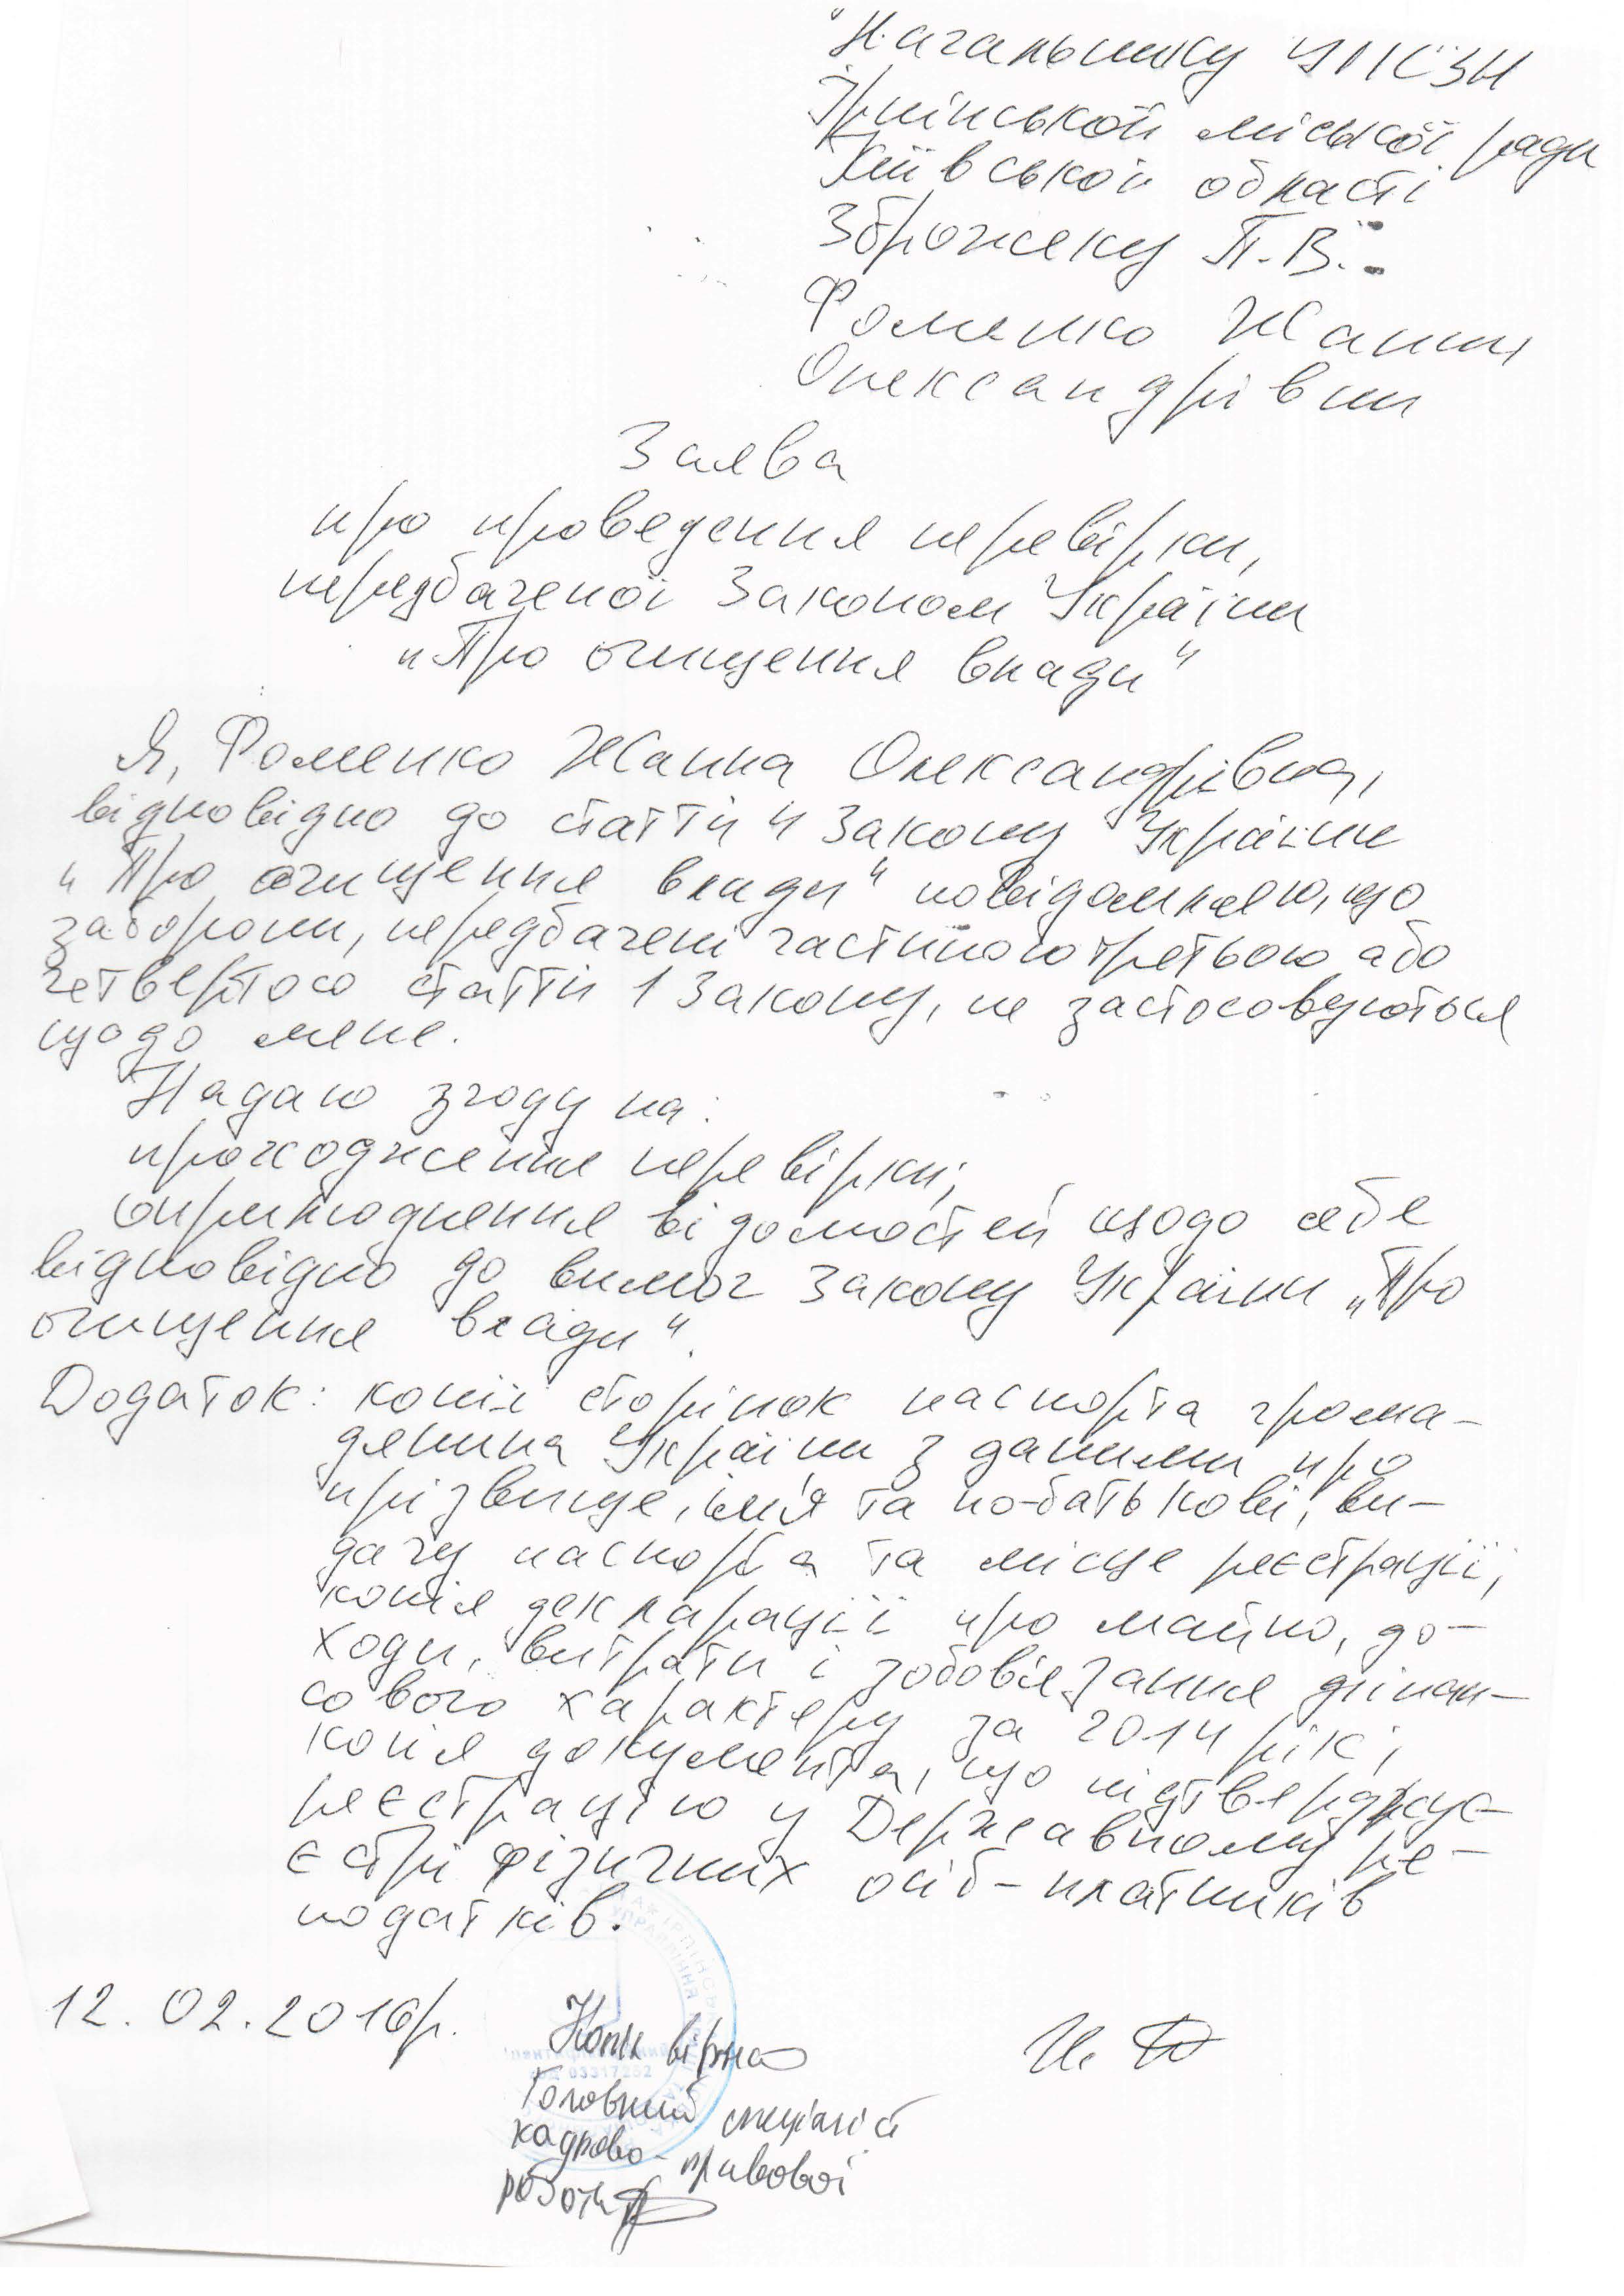 Начальнику УПСЗН
Ірпінської міської ради
Київської області
Зброжеку П.В.
Фоменко Жанни
Олександрівни
Заява
про проведення перевірки,
передбаченої Законом України
"Про очищення влади"
Я, Фоменко Жанна Олександрівна,
відповідно до статті 4 Закону України
"Про очищення влади" повідомляю, що
заборони, передбачені частиною третьою або
четвертою статті 1 Закону, не застосовуються
щодо мене.
Надаю згоду на:
проходження перевірки;
оприлюднення відомостей щодо себе
відповідно до вимог Закону України „Про
очищення влади".
Додаток: копії сторінок паспорта грома-
дянина України з даними про
прізвище, ім'я та по-батькові, ви-
дачу паспорта та місце реєстрації;
копія декларації про майно, до-
ходи, витрати і зобов'язання фінан-
сового характеру за 2014 рік;
копія документа, що підтверджує
реєстрацію у Державному ре-
єстрі фізичних осіб-платників
податків.
12.02.2016р.
Копія вірна
03317252
Головний спеціаліст
кадрово-правової
роботи